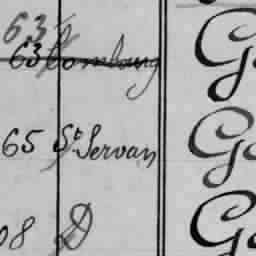 63
63 Combourg G
65 St Servan Ga
08 D Ga